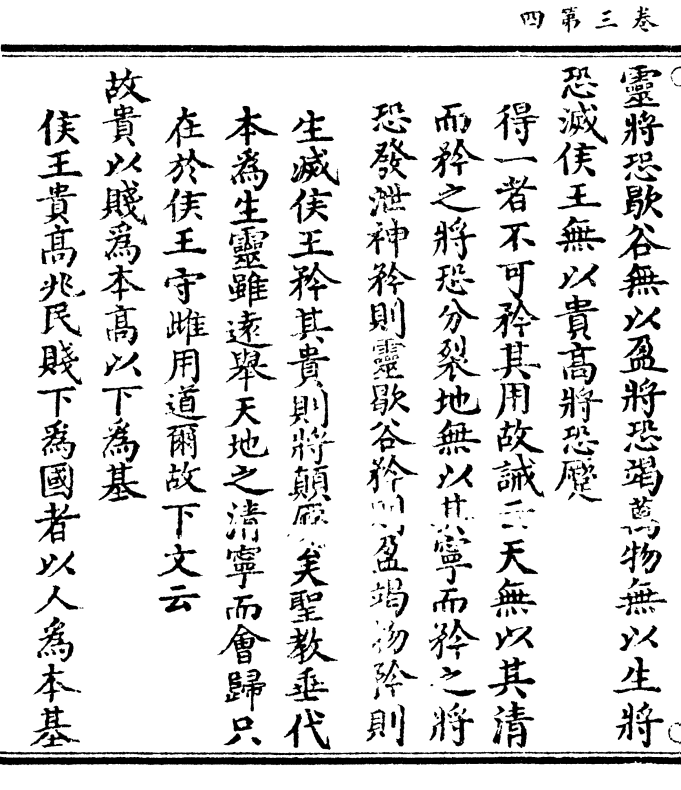 卷三第四
靈將恐歇谷無以盈將恐竭萬物無以生將
恐滅侯王無以貴高將恐蹷
得一者不可矜其用故誡云天無以其清
而矜之將恐分裂地無以其寧而矜之將
恐發泄神矜則靈歇谷矜則盈竭物矜則
生滅侯王矜其貴則將顛蹷矣聖教垂代
本爲生靈雖遠舉天地之清寧而會歸只
在於侯王守雌用道爾故下文云
故貴以賤爲本高以下爲基
侯王貴高兆民賤下爲國者以人爲本基